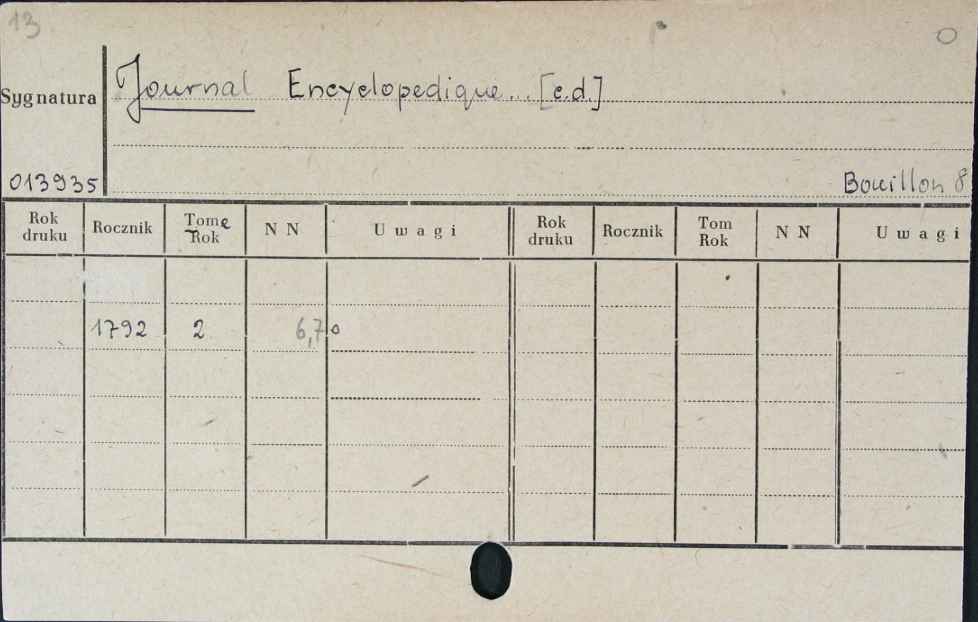 13
Journal Encyclopedique... [c.d.]
Sygnatura
013935 Bouillon 8
Rok druku Rocznik Tome Rok N N Uwagi Rok druku Rocznik Tom Rok N N Uwagi
1792 2 6,7 o